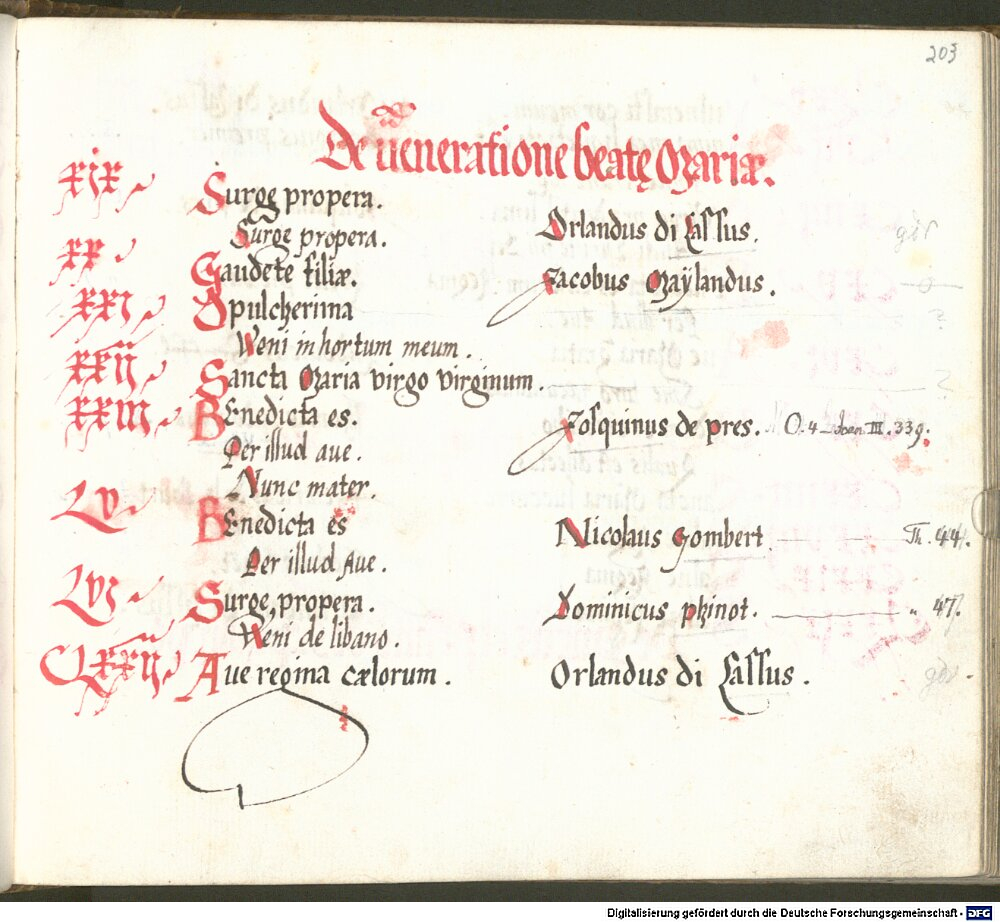 203
De ueneratione beatę Mariæ.
xix Surge propera.
Surge propera. Orlandus di Lassus.
xx Gaudete filiæ. Jacobus Maÿlandus.
xxi O pulcherima
Veni in hortum meum.
xxij Sancta Maria virgo virginum.
xxiii BEnedicta es. Josquinus de pres. O. 4 III. 339.
Per illud aue.
Nunc mater.
Lv BEnedicta es Nicolaus Gombert Th. 44.
Per illud Aue.
Lvi Surge, propera. Dominicus phinot. " 47.
Veni de libano.
CLxxij Aue regina cælorum. Orlandus di Lassus.
Digitalisierung gefördert durch die Deutsche Forschungsgemeinschaft - DFG